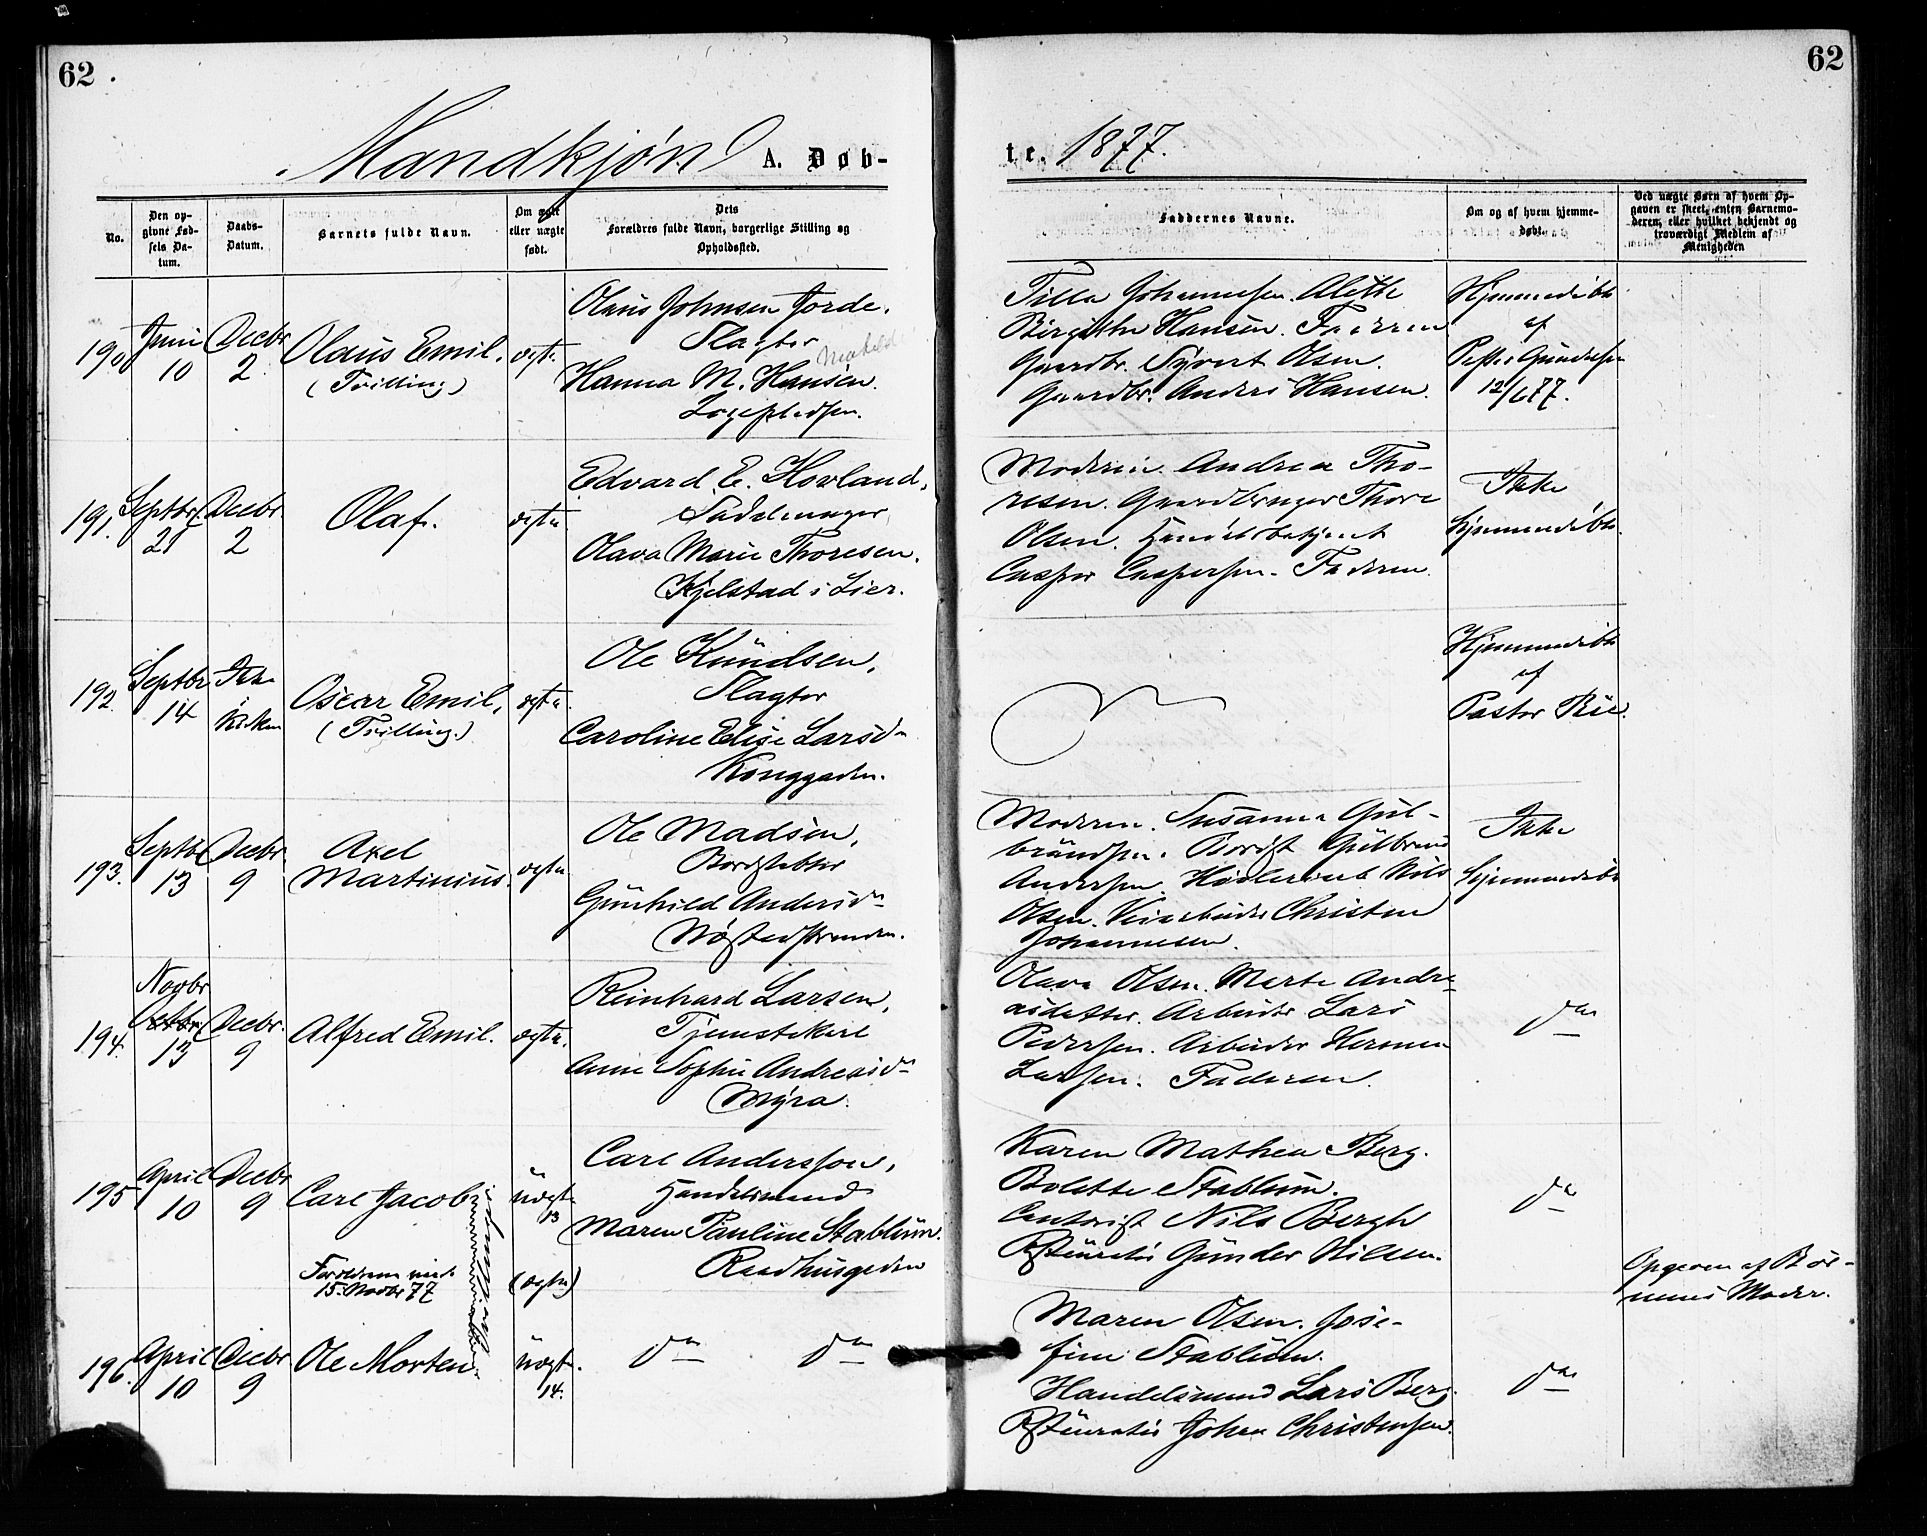 62
62
Mandkjøn A. Døb-
te. 1877.
No.
Den op-
givne Fød-
sels Da-
tum.
Daabs-
Datum.
Barnets fulde Navn.
Om ægte
eller uægte
født.
Dets
Forældres fulde Navn, borgerlige Stilling og
Opholdssted.
Faddernes Navne.
Om og af hvem hjemme-
døbt.
Ved uægte Børn af hvem Op-
gaven er skeet, enten Barnemo-
deren, eller hvilket bekjendt og
troværdigt Medlem af
Menigheden
190
Juni
10
Decbr
2
Olaus Emil.
(Tvilling)
ægte
Olaus Johnsen Jorde.
Slagter
Mathilde
Hanna M. Hansen.
Johannesen. Alethe
Birgithe Hansen. Faderen
Gaardbr. Syvert Olsen.
Gaardbr. Anders Hansen.
Hjemmedøbt
af
Gundersen
12/6 77.
191.
Septbr.
21
Decbr.
2
Olaf.
ægte
Edvard E. Hovland,
Sadelmager
Olava Marie Thoresen.
Kjelstad i Lier.
Moderen. Andrea Tho-
resen. Gaardbruger Thore
Olsen. Handelsbetjent
Casper Caspersen. Faderen.
Ikke
hjemmedøbt.
192.
Septbr
14
Ikke
i
Kirken
Oscar Emil,
(Tvilling.)
ægte
Ole Knudsen,
Slagter
Caroline Elise Larsdn
Konggaden.
Hjemmedøbt
af
Pastor Bøe.
193.
Septbr
13
Decbr.
9
Axel
Martinius.
ægte
Ole Madsen,
Bordstabler
Gunhild Andersdn
Nøstedstranden.
Moderen. Susanne Gul-
brandsen. Gulbrand
Andersen. Nils
Olsen. Veiarbeider Christen
Johannesen.
Ikke
hjemmedøbt
194.
Novbr
Octbr.
13
Decbr.
9
Alfred Emil.
ægte.
Reinhard Larsen,
Tjenestekarl
Anne Sophie Andreasdn
Myra.
Olava Olsen. Marte Andre-
asdatter. Arbeider Lars
Pedersen. Arbeider Herman
Larsen. Faderen.
do
195
April
10
Decbr
9
Carl Jacob
Tvillinger
Forældrene viede
15. Novbr 77
uægte
13
(ægte)
Carl Anderssøn,
Handelsmand
Maren Pauline Stablum.
Raadhusgaden
Karen Mathea Berg.
Bolette Stablum.
Contorist Nils Bergh
Restauratør Gunder Nilsen.
do
Opgiven af Bør-
nenes Moder.
196.
April
10
Decbr
9
Ole Morten
uægte.
14.
do do
Maren Olsen. Jose-
fine Stablum.
Handelsmand Lars Berg.
Restauratør Johan Christensen.
do